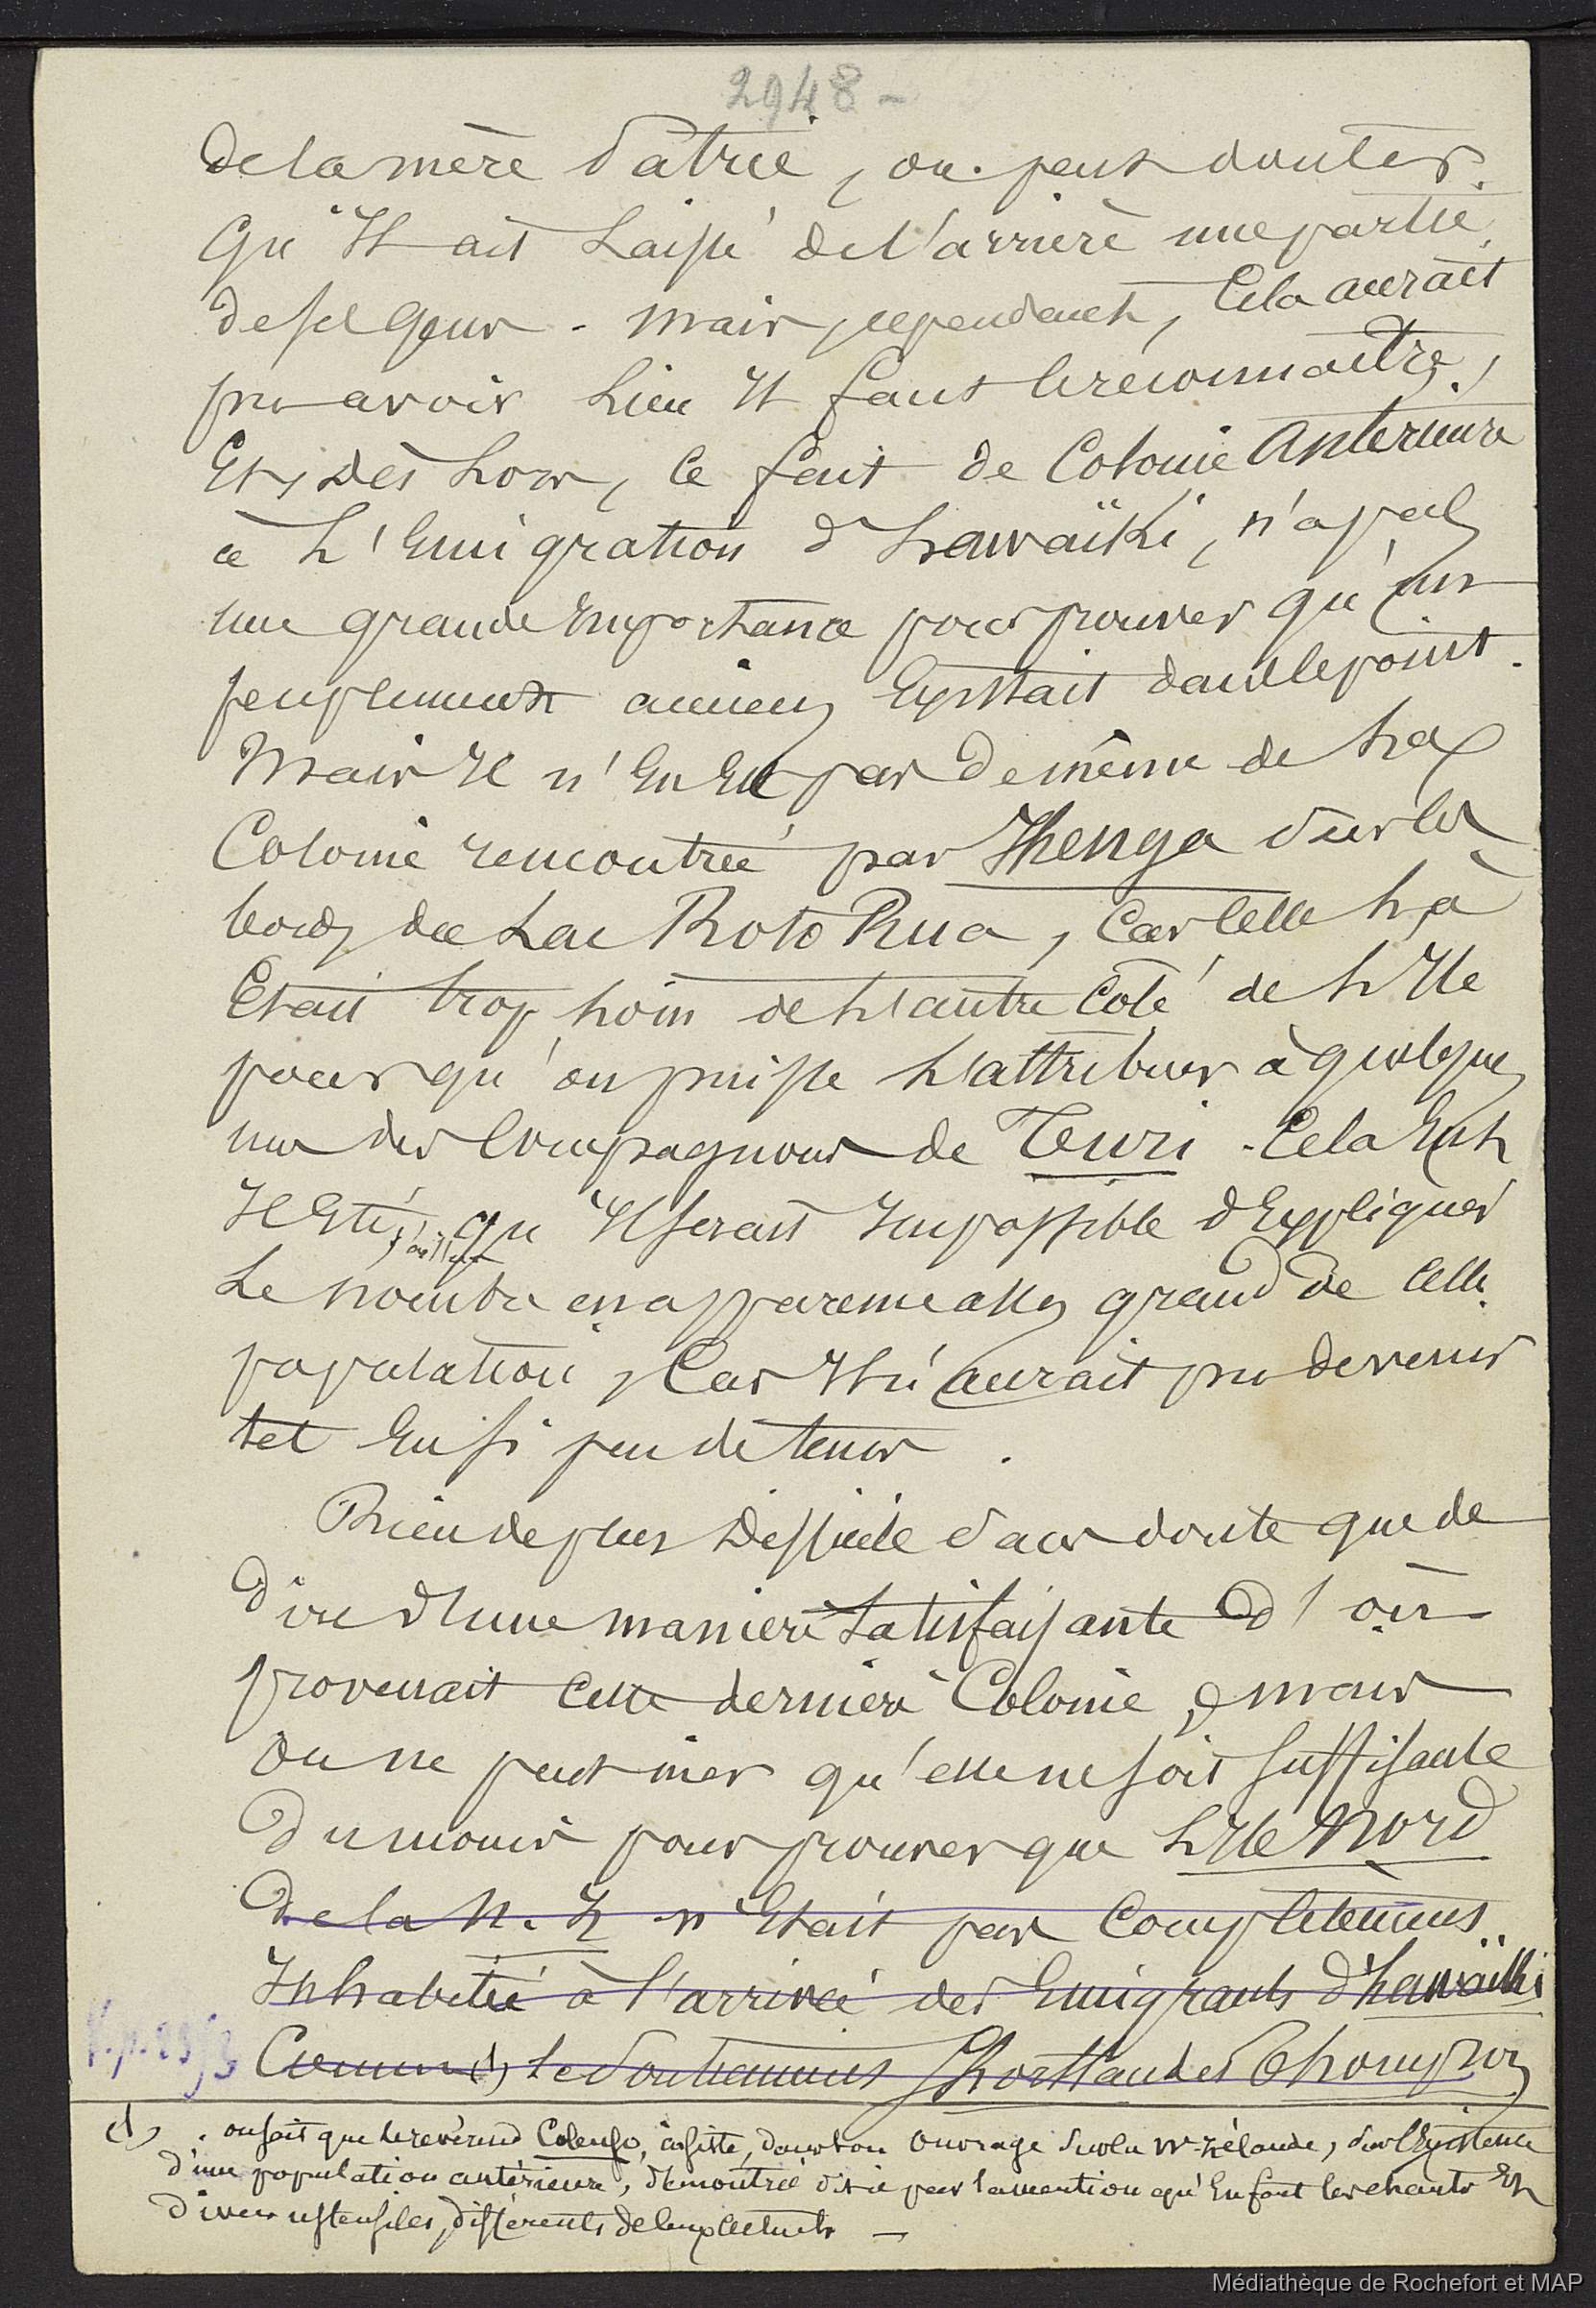 2948 -
de la mère Patrie, on peut douter
qu'Il ait Laissé de l'arrière une partie
de ses gens - mais, cependant, Cela aurait
pu avoir Lieu Il faut le reconnaître,
Et, dès Lors, ce fait de Colonie Antérieure
à L'Emigration d'hawaïki, n'a pas
une grande Importance pour prouver qu'un
peuplement ancien Existait dans le point.
Mais Il n'En Est pas de même de La
Colonie rencontrée par Ihenga sur les
bords du Lac Roto Rua, Car celle Là
Etait trop Loin de L'autre Coté de L'Ile
pour qu'on puisse L'attribuer à quelques
uns des Compagnons de Turi - Cela Est
Il Est vrai, qu'Il serait Impossible d'Expliquer
d'ailleurs
Le nombre en apparence assez grand de cette
population, Car Il n'aurait pu devenir
tel En si peu de tems.
Rien de plus Difficile sans doute que de
dire d'une manière Satisfaisante d'où
provenait cette dernière Colonie, mais
On ne peut nier qu'elle ne soit suffisante
du moins pour prouver que L'Ile Nord
de la N. Z n'Etait pas Complètement
Inhabitée à l'arrivée des Emigrants d'hawaïki
Comme (1) le Soutiennent Shortland et Thompson
V. p. 29
(1) . on sait que le révérend Colenso, insiste, dans son Ouvrage sur la Nlle Zélande, sur l'Existence
d'une population antérieure, démontrée dit-il par la mention qu'En font les chants Et
divers ustensiles, différents de leurs actuels -
Médiathèque de Rochefort et MAP